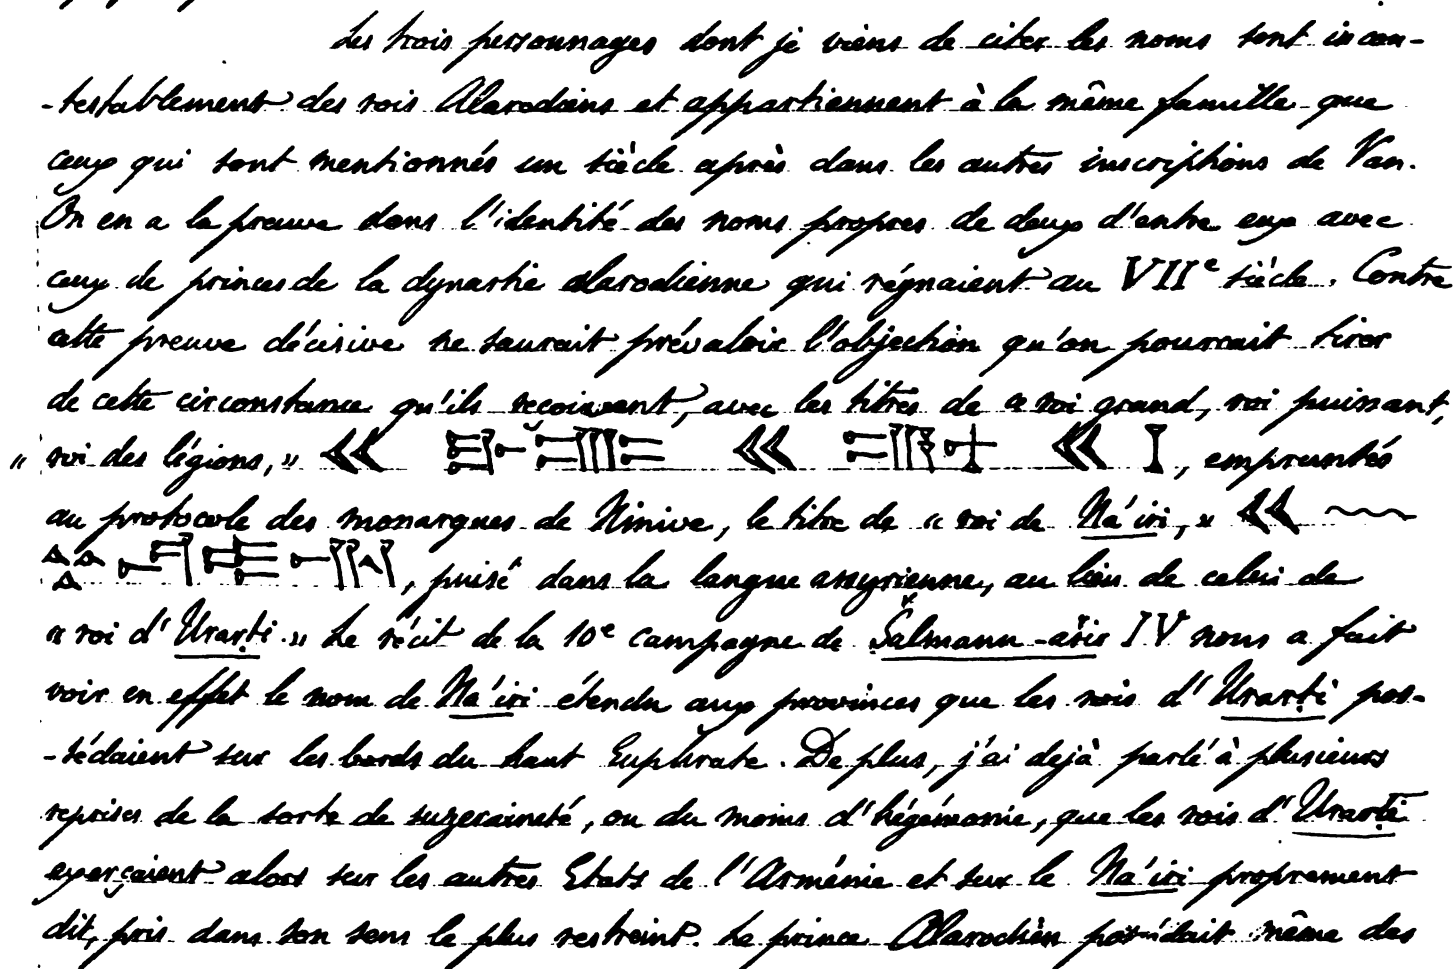 Les trois personnages dont je viens de citer les noms sont incon-
-testablement des rois Alarodiens et appartiennent à la même famille que
ceux qui sont mentionnés un siècle après dans les autres inscriptions de Van.
On en a la preuve dans l'identité des noms propres de deux d'entre eux avec
ceux de princes de la dynastie alarodienne qui régnaient au VIIe siècle. Contre
cette preuve décisive ne saurait prévaloir l'objection qu'on pourrait tirer
de cette circonstance qu'ils reçoivent, avec les titres de « roi grand, roi puissant,
« roi des légions, » , empruntés
au protocole des monarques de Ninive, le titre de « roi de Na'iri, »
, puisé dans la langue assyrienne, au lieu de celui de
« roi d'Urarṭi. » Le récit de la 10e campagne de Šalmanu-ašir IV nous a fait
voir en effet le nom de Na'iri étendu aux provinces que les rois d'Urarṭi pos-
-sédaient sur les bords du haut Euphrate. De plus, j'ai dejà parlé à plusieurs
reprises de la sorte de suzeraineté, ou du moins d'hégémonie, que les rois d'Urarṭi
exerçaient alors sur les autres Etats de l'Arménie et sur le Na'iri proprement
dit, pris dans son sens le plus restreint. Le prince Alarodien possédait même des